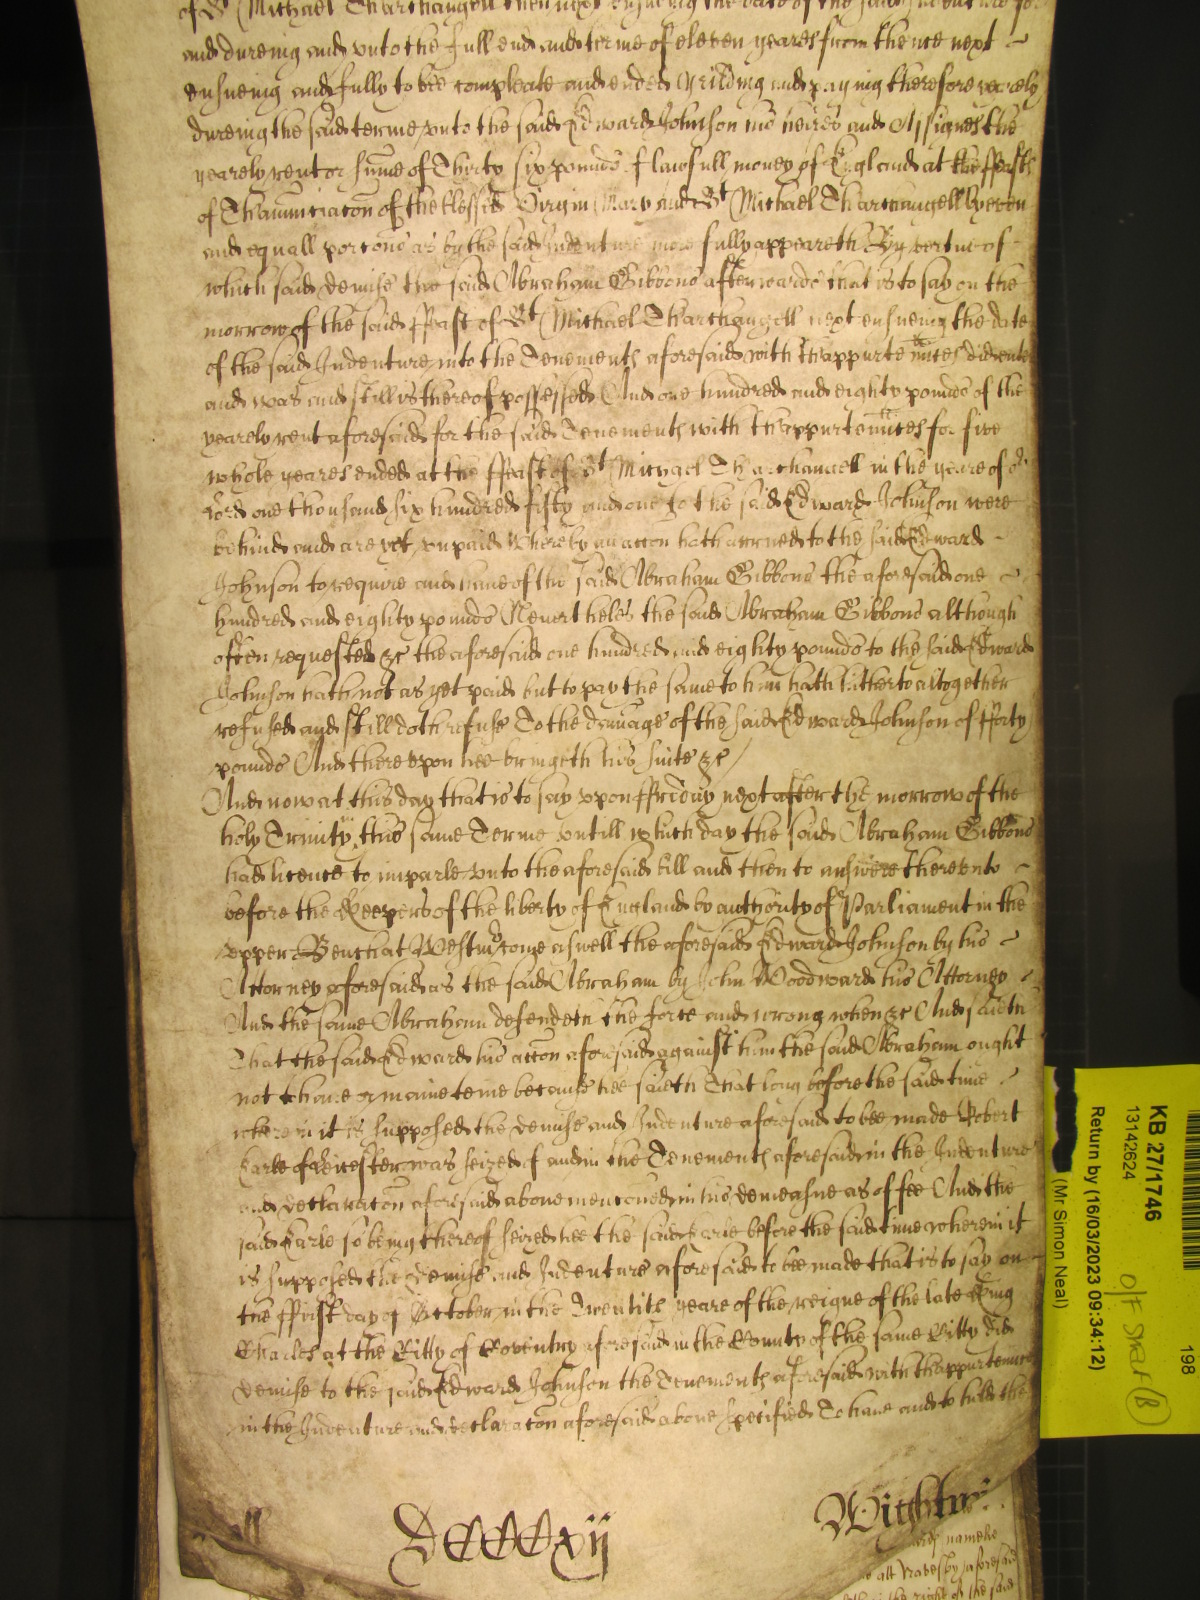 of St Michael Tharchangell then next ensueing the date of the said Indenture for
and dureing and unto the full end and terme of eleven yeares from thence next
ensueing and fully to bee compleate and ended Yeilding and paying therefore yearely
dureing the said terme unto the said Edward Johnson his heires and Assignes the
yearely rent or sume of Thirty six pounds of lawfull money of England at the ffeasts
of Thanunciacon of the blessed Virgin Mary and St Michael Tharchangell by even
and equall porcons as by the said Indenture more fully appeareth By vertue of
which said demise the said Abraham Gibbons afterwards that is to say on the
morrow of the said ffeast of St Michael Tharchangell next ensueing the date
of the said Indenture into the Tenements aforesaid with thappurtenntes did enter
and was and still is thereof possessed And one hundred and eighty pounds of the
yearely rent aforesaid for the said Tenements with thappurtenntes for five
whole yeares ended at the ffeast of St Michael Tharchangell in the yeare of or
Lord one thousand six hundred fifty and one to the said Edward Johnson were
behind and are yet unpaid Whereby an accon hath accrued to the said Edward
Johnson to require and have of the said Abraham Gibbons the aforesaid one
hundred and eighty pounds Neverthelesse the said Abraham Gibbons although
often requested &c the aforesaid one hundred and eighty pounds to the said Edward
Johnson hath not as yet paid but to pay the same to him hath hitherto altogether
refused and still doth refuse To the damage of the said Edward Johnson of fforty
pounds And thereupon hee bringeth his suite &c
And now at this day that is to say upon ffriday next after the morrow of the
holy Trinity this same Terme untill which day the said Abraham Gibbons
had licence to imparle unto the aforesaid bill and then to answere thereunto
before the Keepers of the liberty of England by authority of Parliament in the
upper Bench at Westmr come aswell the aforesaid Edward Johnson by his
Attorney aforesaid as the said Abraham by John Woodward his Attorney
And the same Abraham defendeth the force and wrong when &c And saieth
That the said Edward his accon aforesaid against him the said Abraham ought
not to have or mainteine because hee saieth That long before the said time
wherein it is supposed the demise and Indenture aforesaid to bee made Robert
Earle of Leicester was seized of and in the Tenements aforesaid in the Indenture
and declaracon aforesaid above mencioned in his demeasne as of fee And the
said Earle so being thereof seized hee the said Earle before the said time wherein it
is supposed the demise and Indenture aforesaid to bee made that is to say on
the ffirst day of October in the Twentith yeare of the reigne of the late King
Charles at the Citty of Coventry aforesaid in the County of the same Citty did
demise to the said Edward Johnson the Tenements aforesaid with thappurtennces
in the Indenture and declaracon aforesaid above specified To have and to hold the
DCCCCxij
Wightwi
KB 27/1746
13142624
198
O/F Shelf (B)
Return by (16/03/2023 09:34:12)
(Mr Simon Neal)